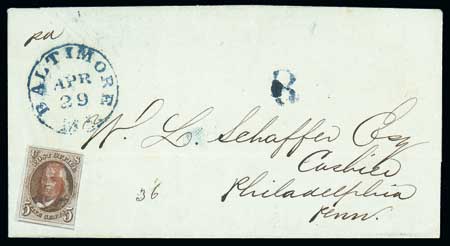 pd
BALTIMORE
APR
29
Md
8
W. L. Schaffer Esq
Cashier
Philadelphia
Penn.
36
5 5